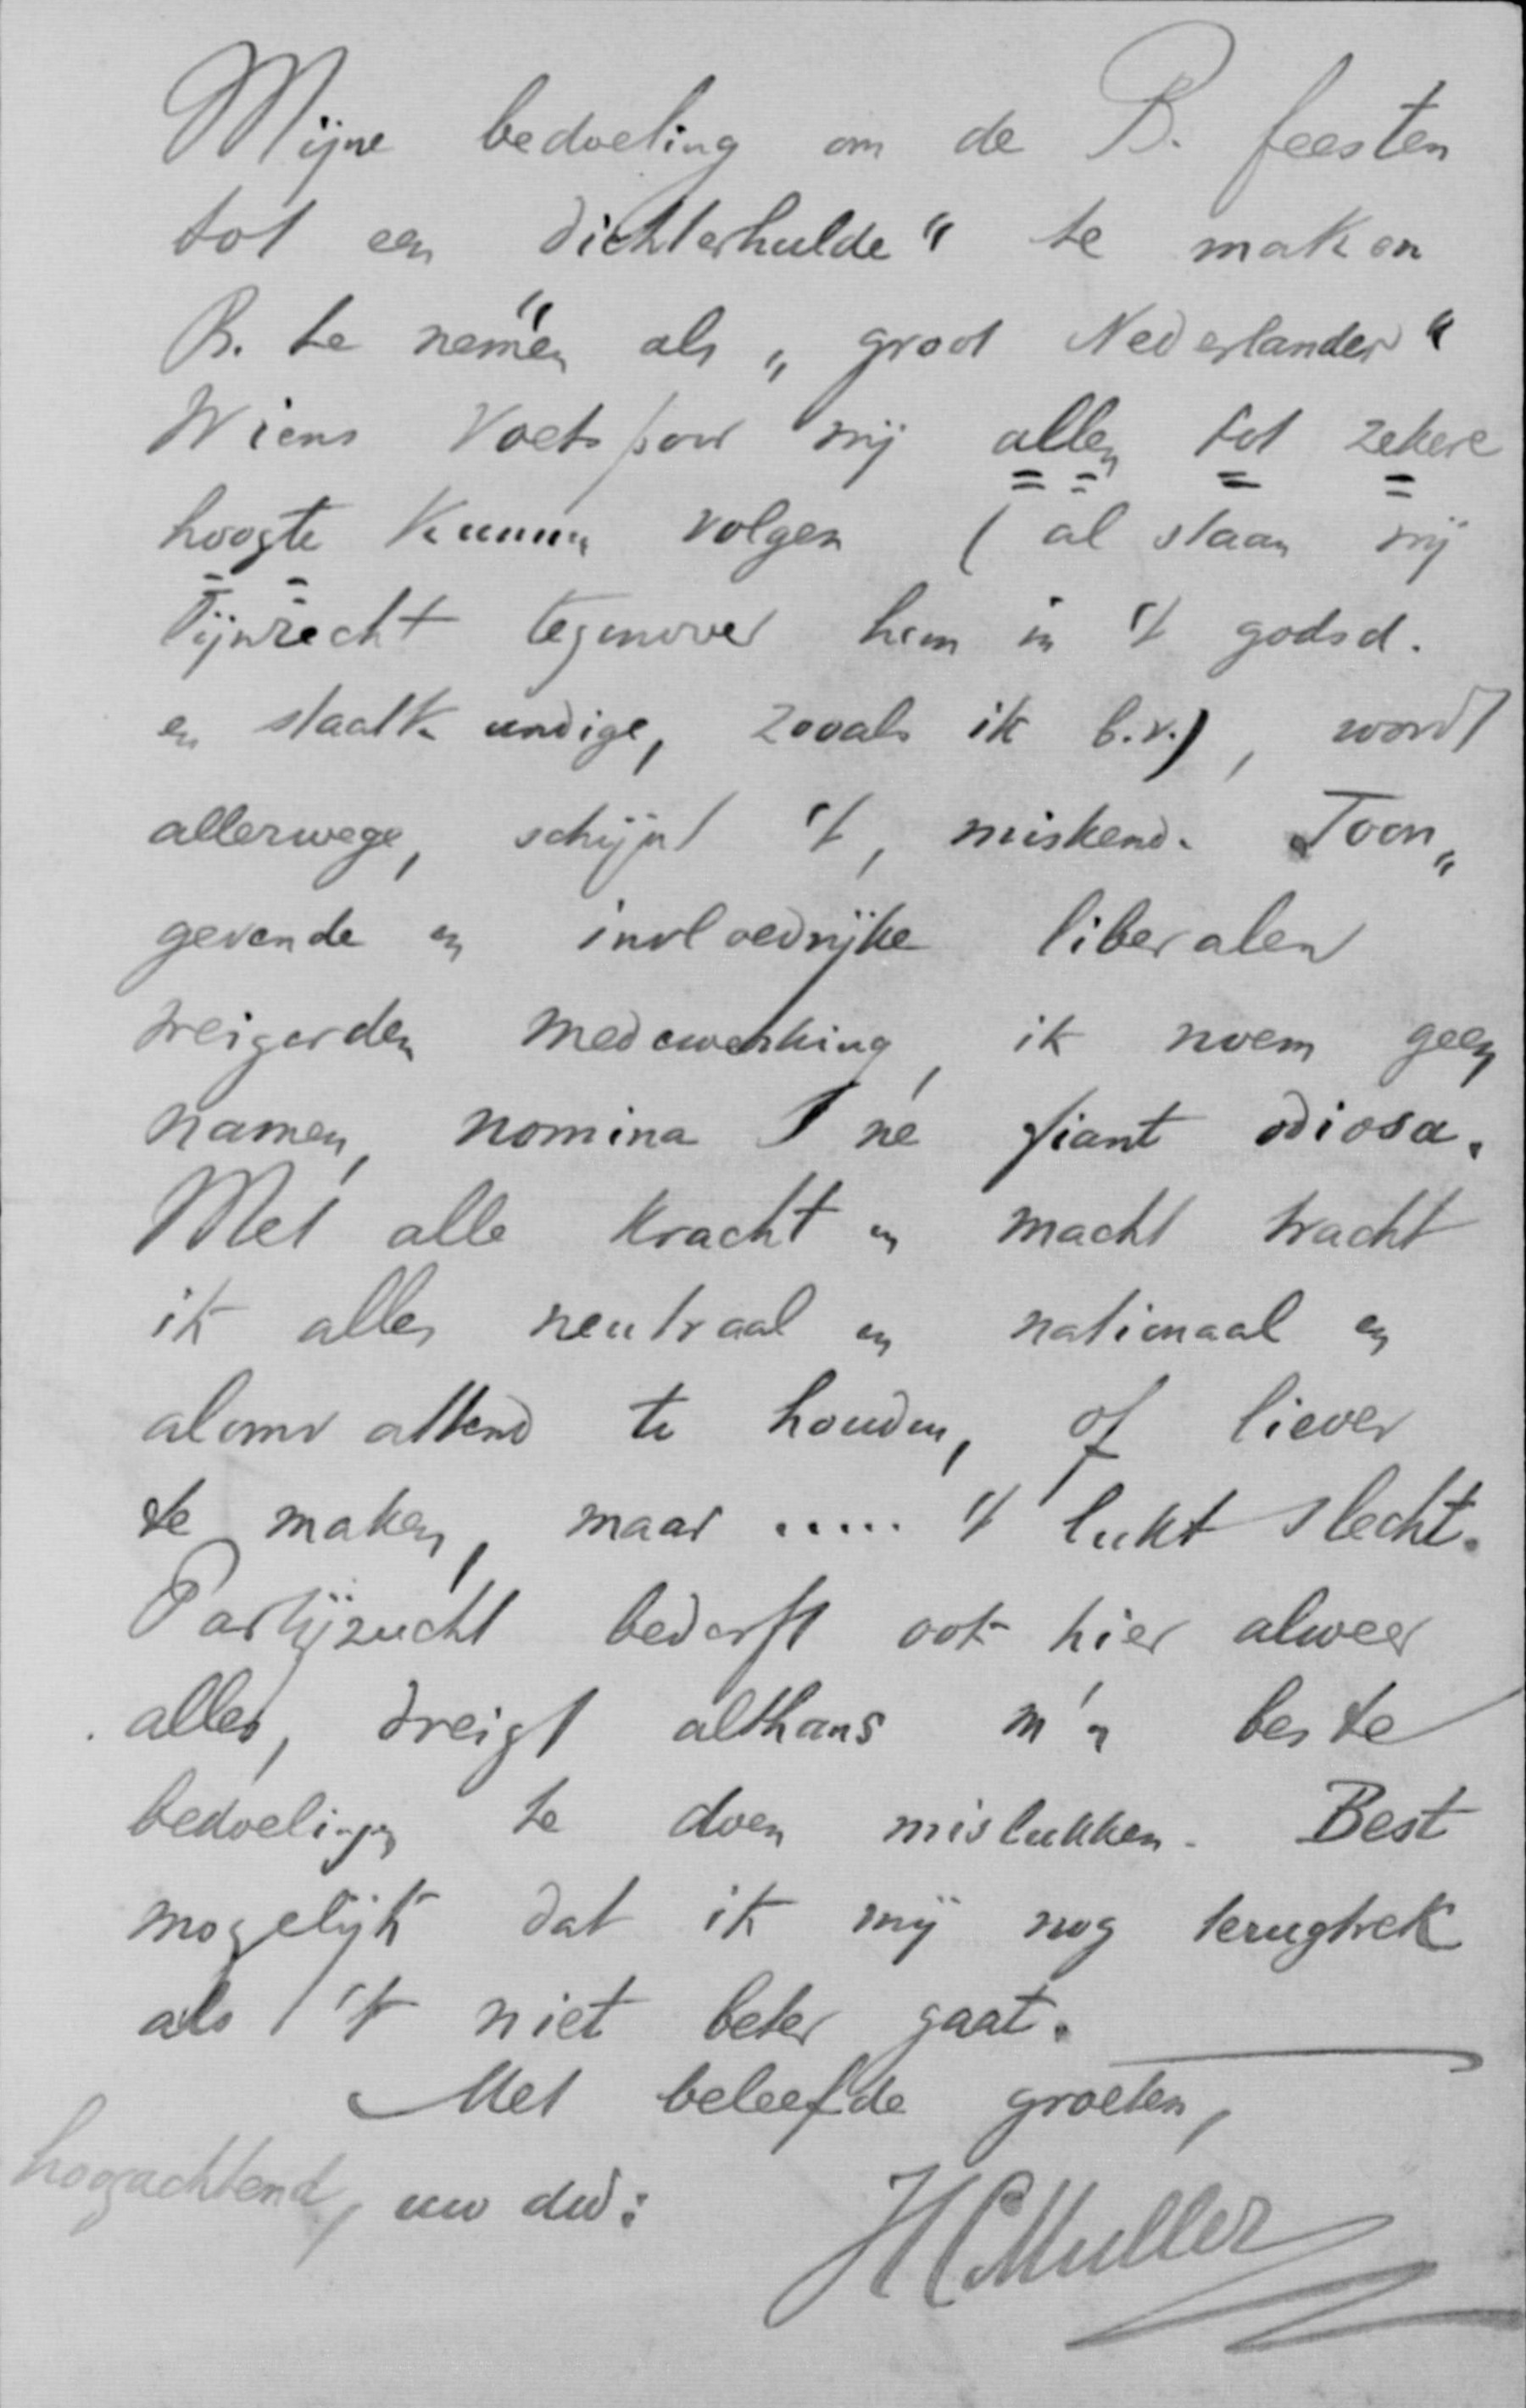 Mijne bedoeling om de B. feesten
tot een „dichterhulde" te maken
B. te nemen als „groot Nederlander"
Wiens voetspoor wij allen tot zekere
hoogte kunnen volgen (al staan wij
lijnrecht tegenover hem in 't godsd.
en staatkundige, zooals ik b.v.), wordt
allerwege, schijnt 't, miskend. Toon„
gevende en invloedrijke liberalen
weigerden medewerking, ik noem geen
namen, nomina ne fiant odiosa.
Met alle kracht en macht tracht
ik alles neutraal en nationaal en
te houden, of liever
te maken, maar ..... 't lukt slecht.
Partijzucht bederft ook hier alweer
alles, dreigt althans m'n beste
bedoelingen te doen mislukken. Best
mogelijk dat ik mij nog terugtrek
als 't niet beter gaat.
Met beleefde groeten,
hoogachtend, uw dw:
HCMuller